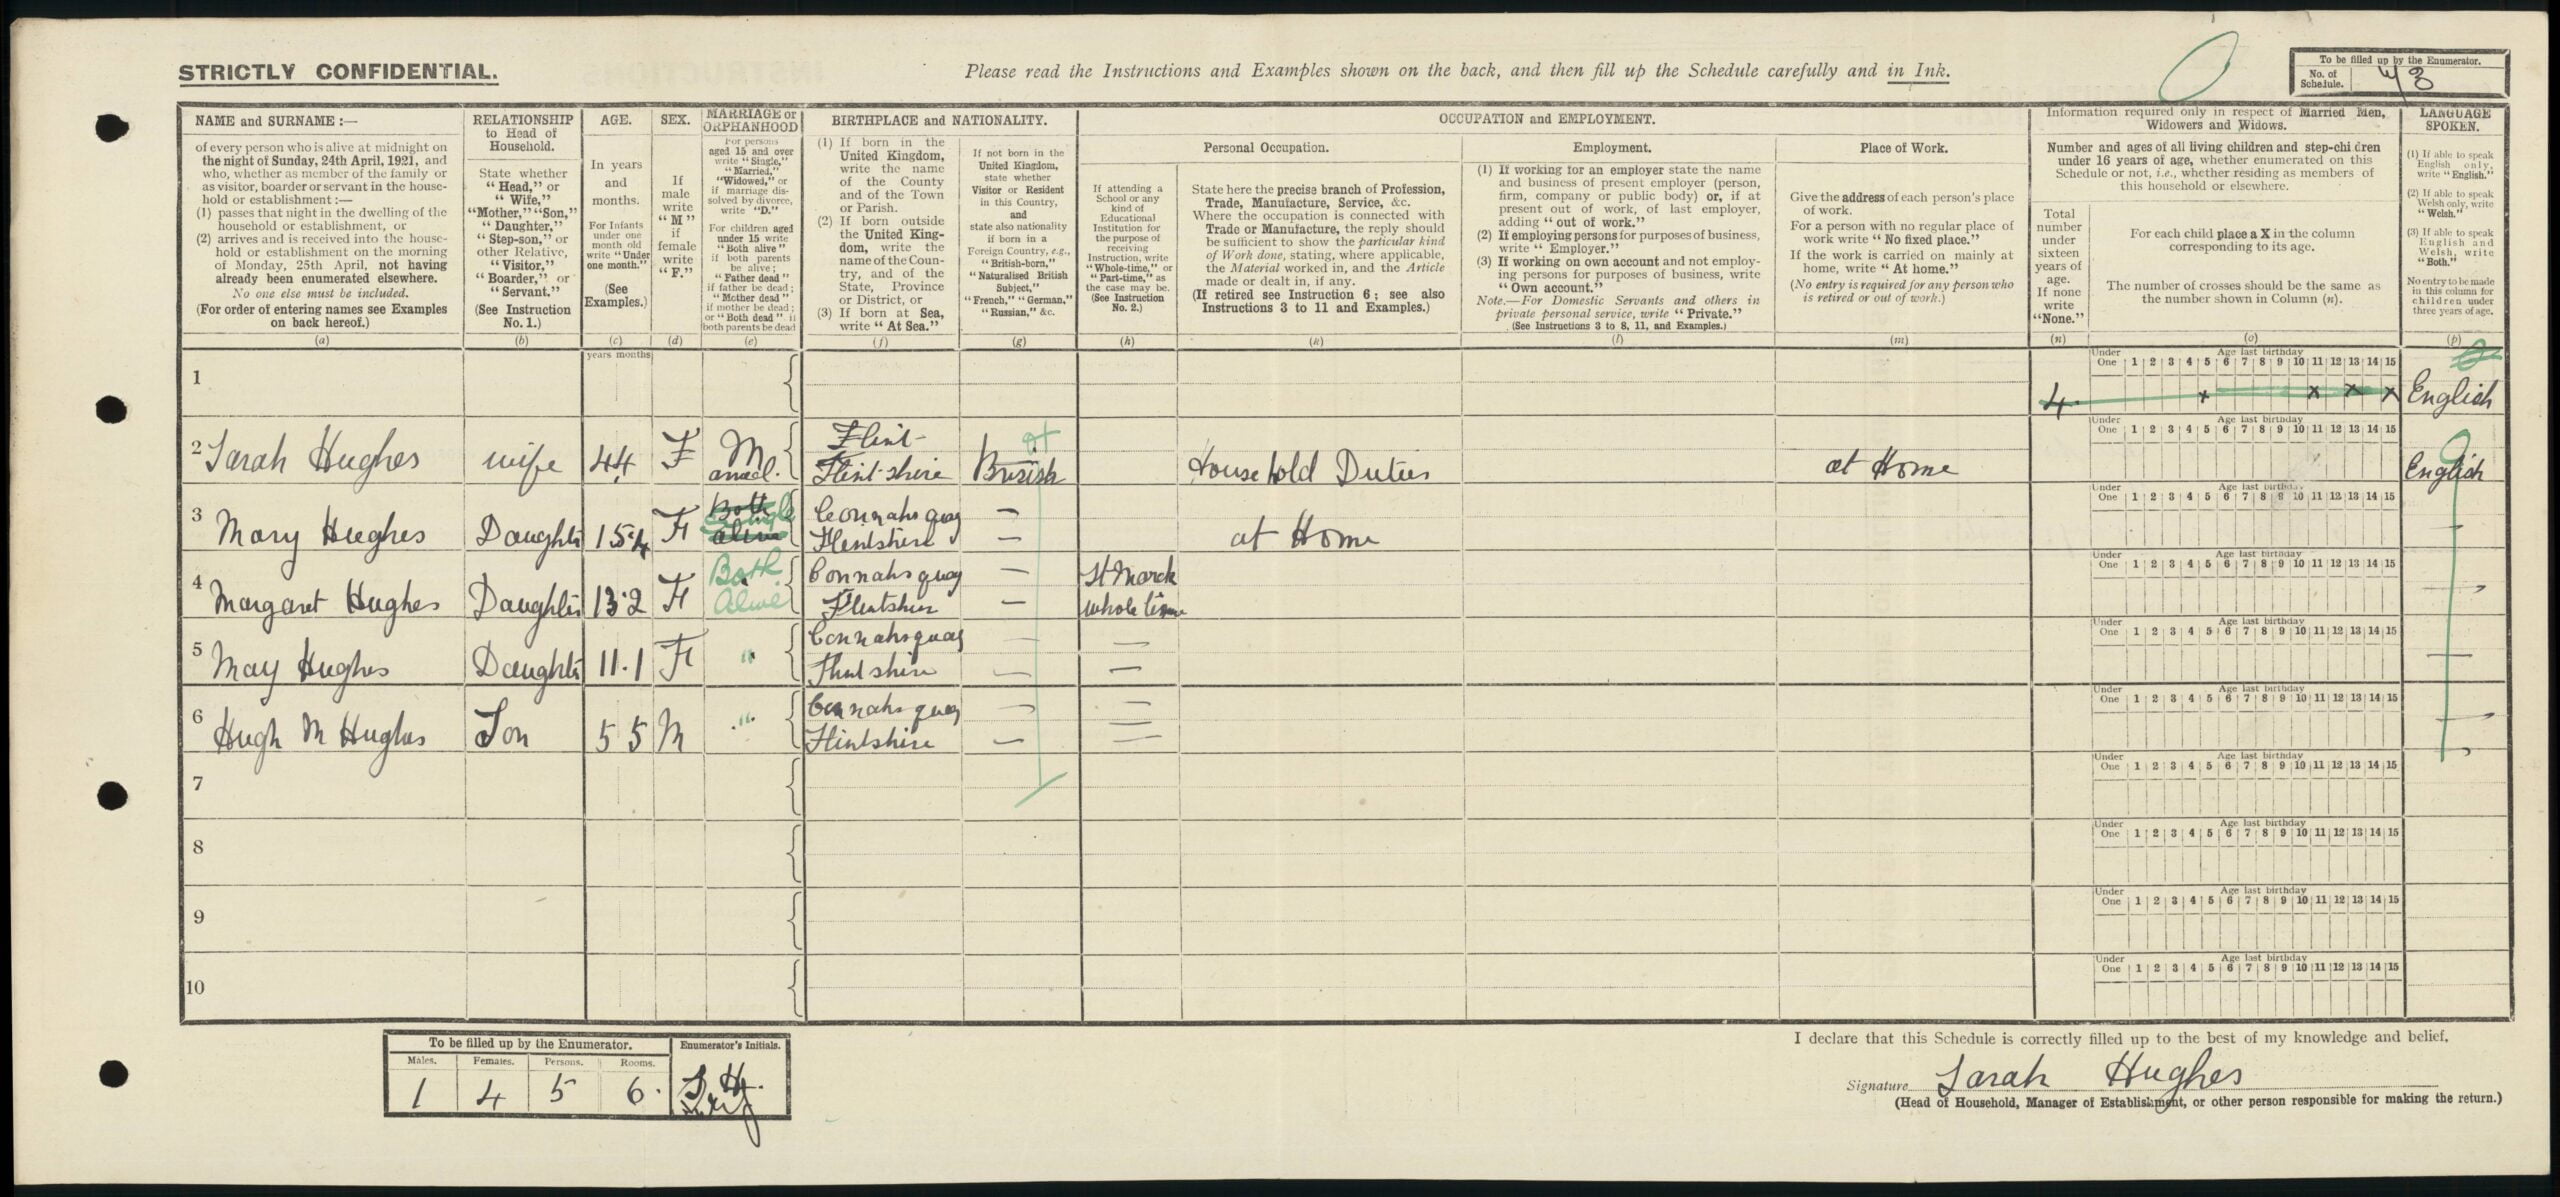 STRICTLY CONFIDENTIAL.
Please read the Instructions and Examples shown on the back, and then fill up the Schedule carefully and in Ink.
To be filled up by the Enumerator.
No. of
Schedule.
NAME and SURNAME :—
of every person who is alive at midnight on
the night of Sunday, 24th April, 1921, and
who, whether as member of the family or
as visitor, boarder or servant in the house-
hold or establishment :—
(1) passes that night in the dwelling of the
household or establishment, or
(2) arrives and is received into the house-
hold or establishment on the morning
of Monday, 25th April, not having
already been enumerated elsewhere.
No one else must be included.
(For order of entering names see Examples
on back hereof.)
(a)
RELATIONSHIP
to Head of
Household.
State whether
"Head," or
"Wife,"
"Mother," "Son,"
"Daughter,"
"Step-son," or
other Relative,
"Visitor,"
"Boarder," or
"Servant."
(See Instruction
No. 1.)
(b)
AGE.
In years
and
months.
For Infants
under one
month old
write "Under
one month."
(See
Examples.)
(c)
years months
SEX.
If
male
write
"M"
if
female
write
"F."
(d)
MARRIAGE or
ORPHANHOOD
For persons
aged 15 and over
write "Single,"
"Married,"
"Widowed," or
if marriage dis-
solved by divorce,
write "D."
For children aged
under 15 write
"Both alive"
if both parents
be alive;
"Father dead"
if father be dead;
"Mother dead"
if mother be dead;
or "Both dead" if
both parents be dead
(e)
BIRTHPLACE and NATIONALITY.
(1) If born in the
United Kingdom,
write the name
of the County
and of the Town
or Parish.
(2) If born outside
the United King-
dom, write the
name of the Coun-
try, and of the
State, Province
or District, or
(3) If born at Sea,
write "At Sea."
(f)
If not born in the
United Kingdom,
state whether
Visitor or Resident
in this Country,
and
state also nationality
if born in a
Foreign Country, e.g.,
"British-born,"
"Naturalised British
Subject,"
"French," "German,"
"Russian," &c.
(g)
OCCUPATION and EMPLOYMENT.
If attending a
School or any
kind of
Educational
Institution for
the purpose of
receiving
Instruction, write
"Whole-time," or
"Part-time," as
the case may be.
(See Instruction
No. 2.)
(h)
Personal Occupation.
State here the precise branch of Profession,
Trade, Manufacture, Service, &c.
Where the occupation is connected with
Trade or Manufacture, the reply should
be sufficient to show the particular kind
of Work done, stating, where applicable,
the Material worked in, and the Article
made or dealt in, if any.
(If retired see Instruction 6; see also
Instructions 3 to 11 and Examples.)
(k)
Employment.
(1) If working for an employer state the name
and business of present employer (person,
firm, company or public body) or, if at
present out of work, of last employer,
adding "out of work."
(2) If employing persons for purposes of business,
write "Employer."
(3) If working on own account and not employ-
ing persons for purposes of business, write
"Own account."
Note.—For Domestic Servants and others in
private personal service, write "Private."
(See Instructions 3 to 8, 11, and Examples.)
(l)
Place of Work.
Give the address of each person's place
of work.
For a person with no regular place of
work write "No fixed place."
If the work is carried on mainly at
home, write "At home."
(No entry is required for any person who
is retired or out of work.)
(m)
Information required only in respect of Married Men,
Widowers and Widows.
Number and ages of all living children and step-children
under 16 years of age, whether enumerated on this
Schedule or not, i.e., whether residing as members of
this household or elsewhere.
Total
number
under
sixteen
years of
age.
If none
write
"None."
(n)
For each child place a X in the column
corresponding to its age.
The number of crosses should be the same as
the number shown in Column (n).
(o)
LANGUAGE
SPOKEN.
(1) If able to speak
English only,
write "English."
(2) If able to speak
Welsh only, write
"Welsh."
(3) If able to speak
English and
Welsh, write
"Both."
No entry to be made
in this column for
children under
three years of age.
(p)
Under One Age last birthday 1 2 3 4 5 6 7 8 9 10 11 12 13 14 15
1 4 x x x x English
Under One Age last birthday 1 2 3 4 5 6 7 8 9 10 11 12 13 14 15
2 Sarah Hughes wife 44 F M Flint- British Household Duties at Home English
arried. Flintshire
Under One Age last birthday 1 2 3 4 5 6 7 8 9 10 11 12 13 14 15
3 Mary Hughes Daughter 15·4 F Both Single alive Connahs quay — at Home —
Flintshire —
Under One Age last birthday 1 2 3 4 5 6 7 8 9 10 11 12 13 14 15
4 Margaret Hughes Daughter 13·2 F Both Connahs quay — St Marck —
Alive Flintshire — whole time
Under One Age last birthday 1 2 3 4 5 6 7 8 9 10 11 12 13 14 15
5 May Hughes Daughter 11·1 F " Connahs quay — — —
Flintshire — —
Under One Age last birthday 1 2 3 4 5 6 7 8 9 10 11 12 13 14 15
6 Hugh M Hughes Son 5 5 M " Connahs quay — — —
Flintshire — —
Under One Age last birthday 1 2 3 4 5 6 7 8 9 10 11 12 13 14 15
7
Under One Age last birthday 1 2 3 4 5 6 7 8 9 10 11 12 13 14 15
8
Under One Age last birthday 1 2 3 4 5 6 7 8 9 10 11 12 13 14 15
9
Under One Age last birthday 1 2 3 4 5 6 7 8 9 10 11 12 13 14 15
10
To be filled up by the Enumerator.
Males. Females. Persons. Rooms.
1 4 5 6.
Enumerator's Initials.
I declare that this Schedule is correctly filled up to the best of my knowledge and belief.
Signature Sarah Hughes
(Head of Household, Manager of Establishment, or other person responsible for making the return.)